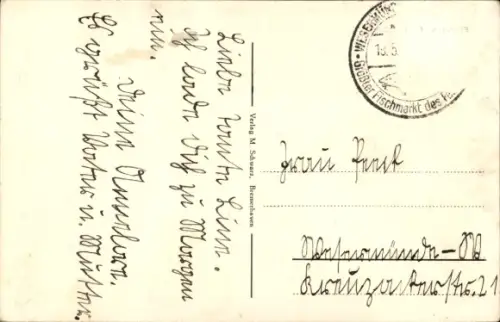 Liebe Tante Line.
Ich lade Dich zu Morgen
ein.
Deine Annelore.
Es grüßt Vater u. Mutter.
Verlag M. Schwarz, Bremerhaven
WESERMÜNDE
Größter Fischmarkt des
Frau
Wesermünde-W
Kreuzackerstr. 21